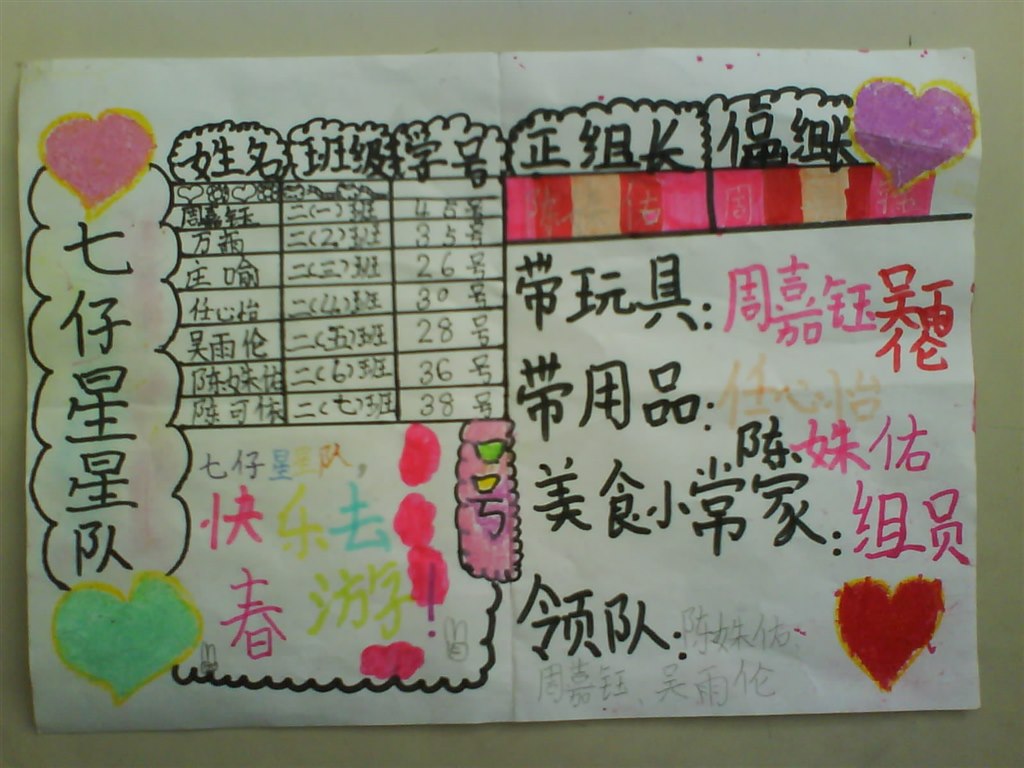 七仔星星队
姓名 班级 学号
周嘉钰 二(一)班 45号
万 二(2)班 35号
庄喻 二(三)班 26号
任心怡 二(4)班 30号
吴雨伦 二(五)班 28号
陈姝佑 二(6)班 36号
陈可 二(七)班 38号
七仔星星队,
快乐去
春游!
号
正组长 组长
陈姝佑 周
带玩具: 周嘉钰 吴雨伦
带用品: 任心怡
美食小常家: 陈姝佑
组员
领队: 陈姝佑
周嘉钰、吴雨伦